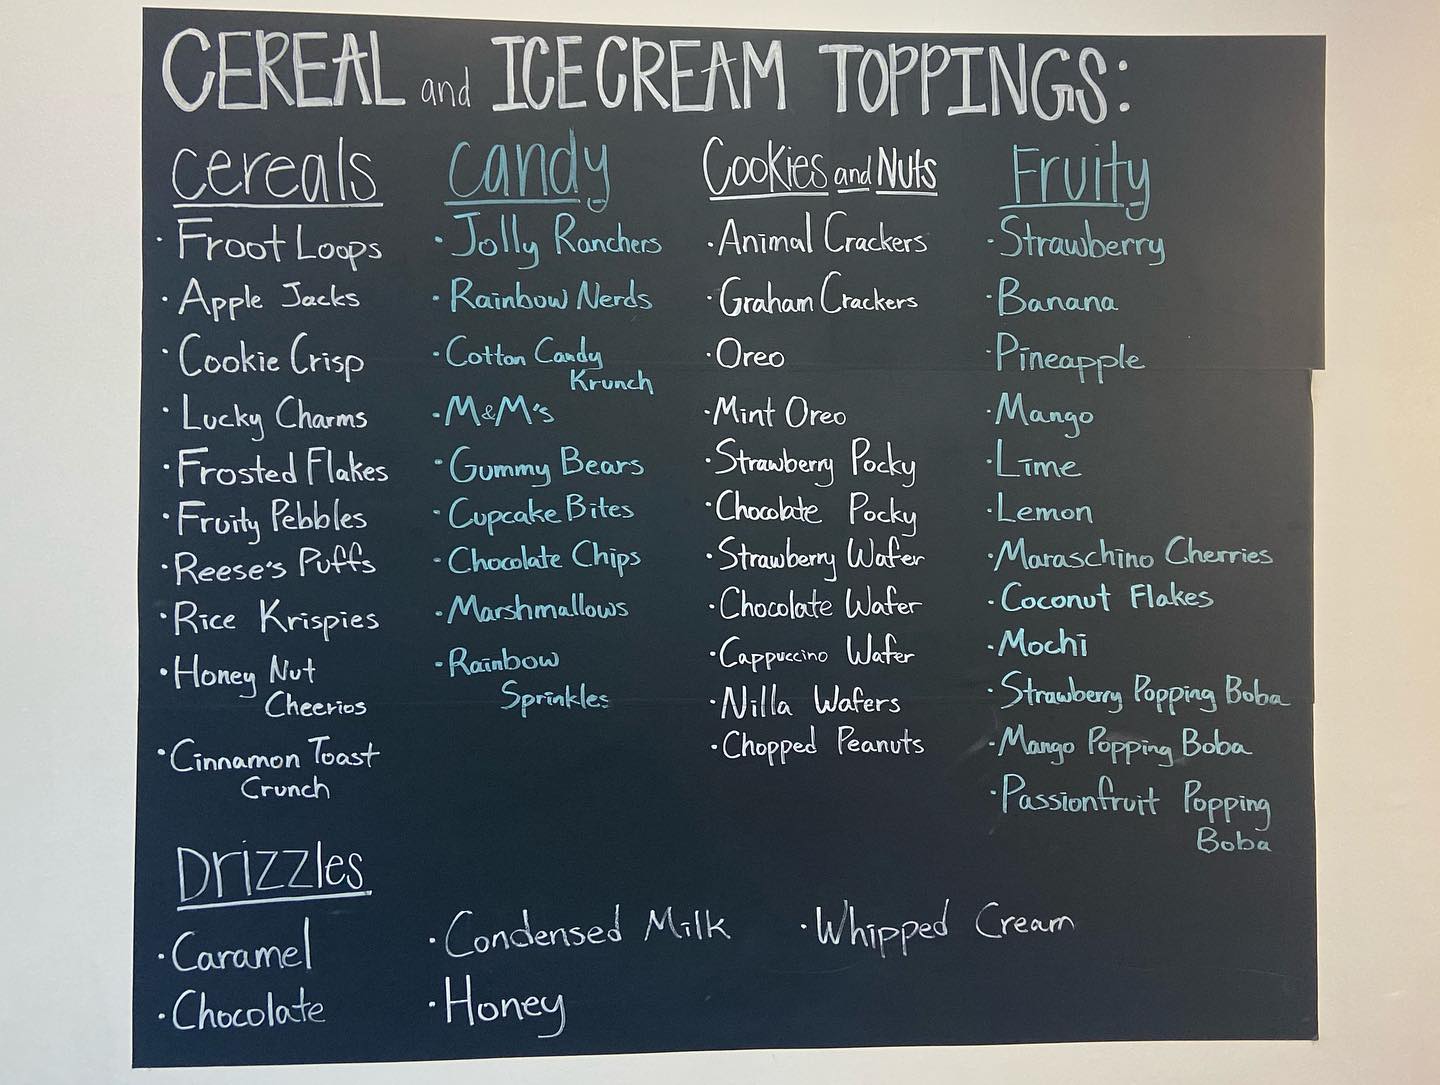 CEREAL and ICE CREAM TOPPINGS:
Cereals
· Froot Loops
· Apple Jacks
· Cookie Crisp
· Lucky Charms
· Frosted Flakes
· Fruity Pebbles
· Reese's Puffs
· Rice Krispies
· Honey Nut
Cheerios
· Cinnamon Toast
Crunch
Candy
· Jolly Ranchers
· Rainbow Nerds
· Cotton Candy
Krunch
· M&M's
· Gummy Bears
· Cupcake Bites
· Chocolate Chips
· Marshmallows
· Rainbow
Sprinkles
Cookies and Nuts
· Animal Crackers
· Graham Crackers
· Oreo
· Mint Oreo
· Strawberry Pocky
· Chocolate Pocky
· Strawberry Wafer
· Chocolate Wafer
· Cappuccino Wafer
· Nilla Wafers
· Chopped Peanuts
Fruity
· Strawberry
· Banana
· Pineapple
· Mango
· Lime
· Lemon
· Maraschino Cherries
· Coconut Flakes
· Mochi
· Strawberry Popping Boba
· Mango Popping Boba
· Passionfruit Popping
Boba
Drizzles
· Caramel
· Chocolate
· Condensed Milk
· Honey
· Whipped Cream